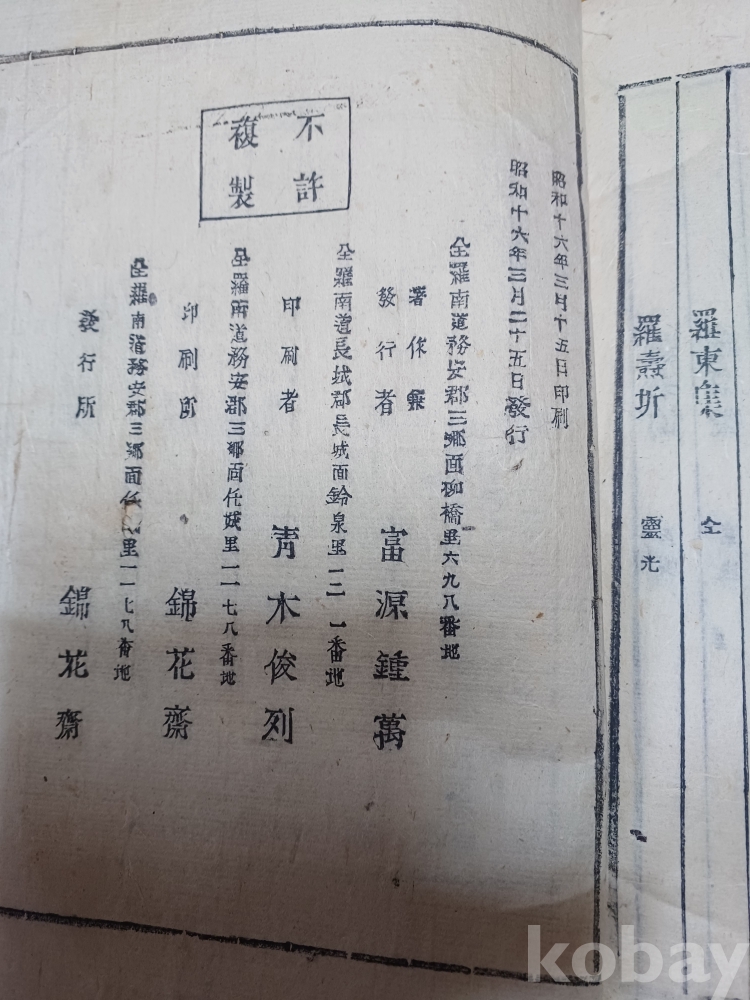 羅東集 仝
羅壽圻 靈光
昭和十六年三月十五日印刷
昭和十六年三月二十五日發行
全羅南道務安郡三鄕面柳橋里六九八番地
著作兼
發行者 富源鍾萬
全羅南道長城郡長城面鈴泉里一二一番地
印刷者 靑木俊列
全羅南道務安郡三鄕面任城里一一七八番地
印刷所 錦花齋
全羅南道務安郡三鄕面任城里一一七八番地
發行所 錦花齋
不許
複製
kobay